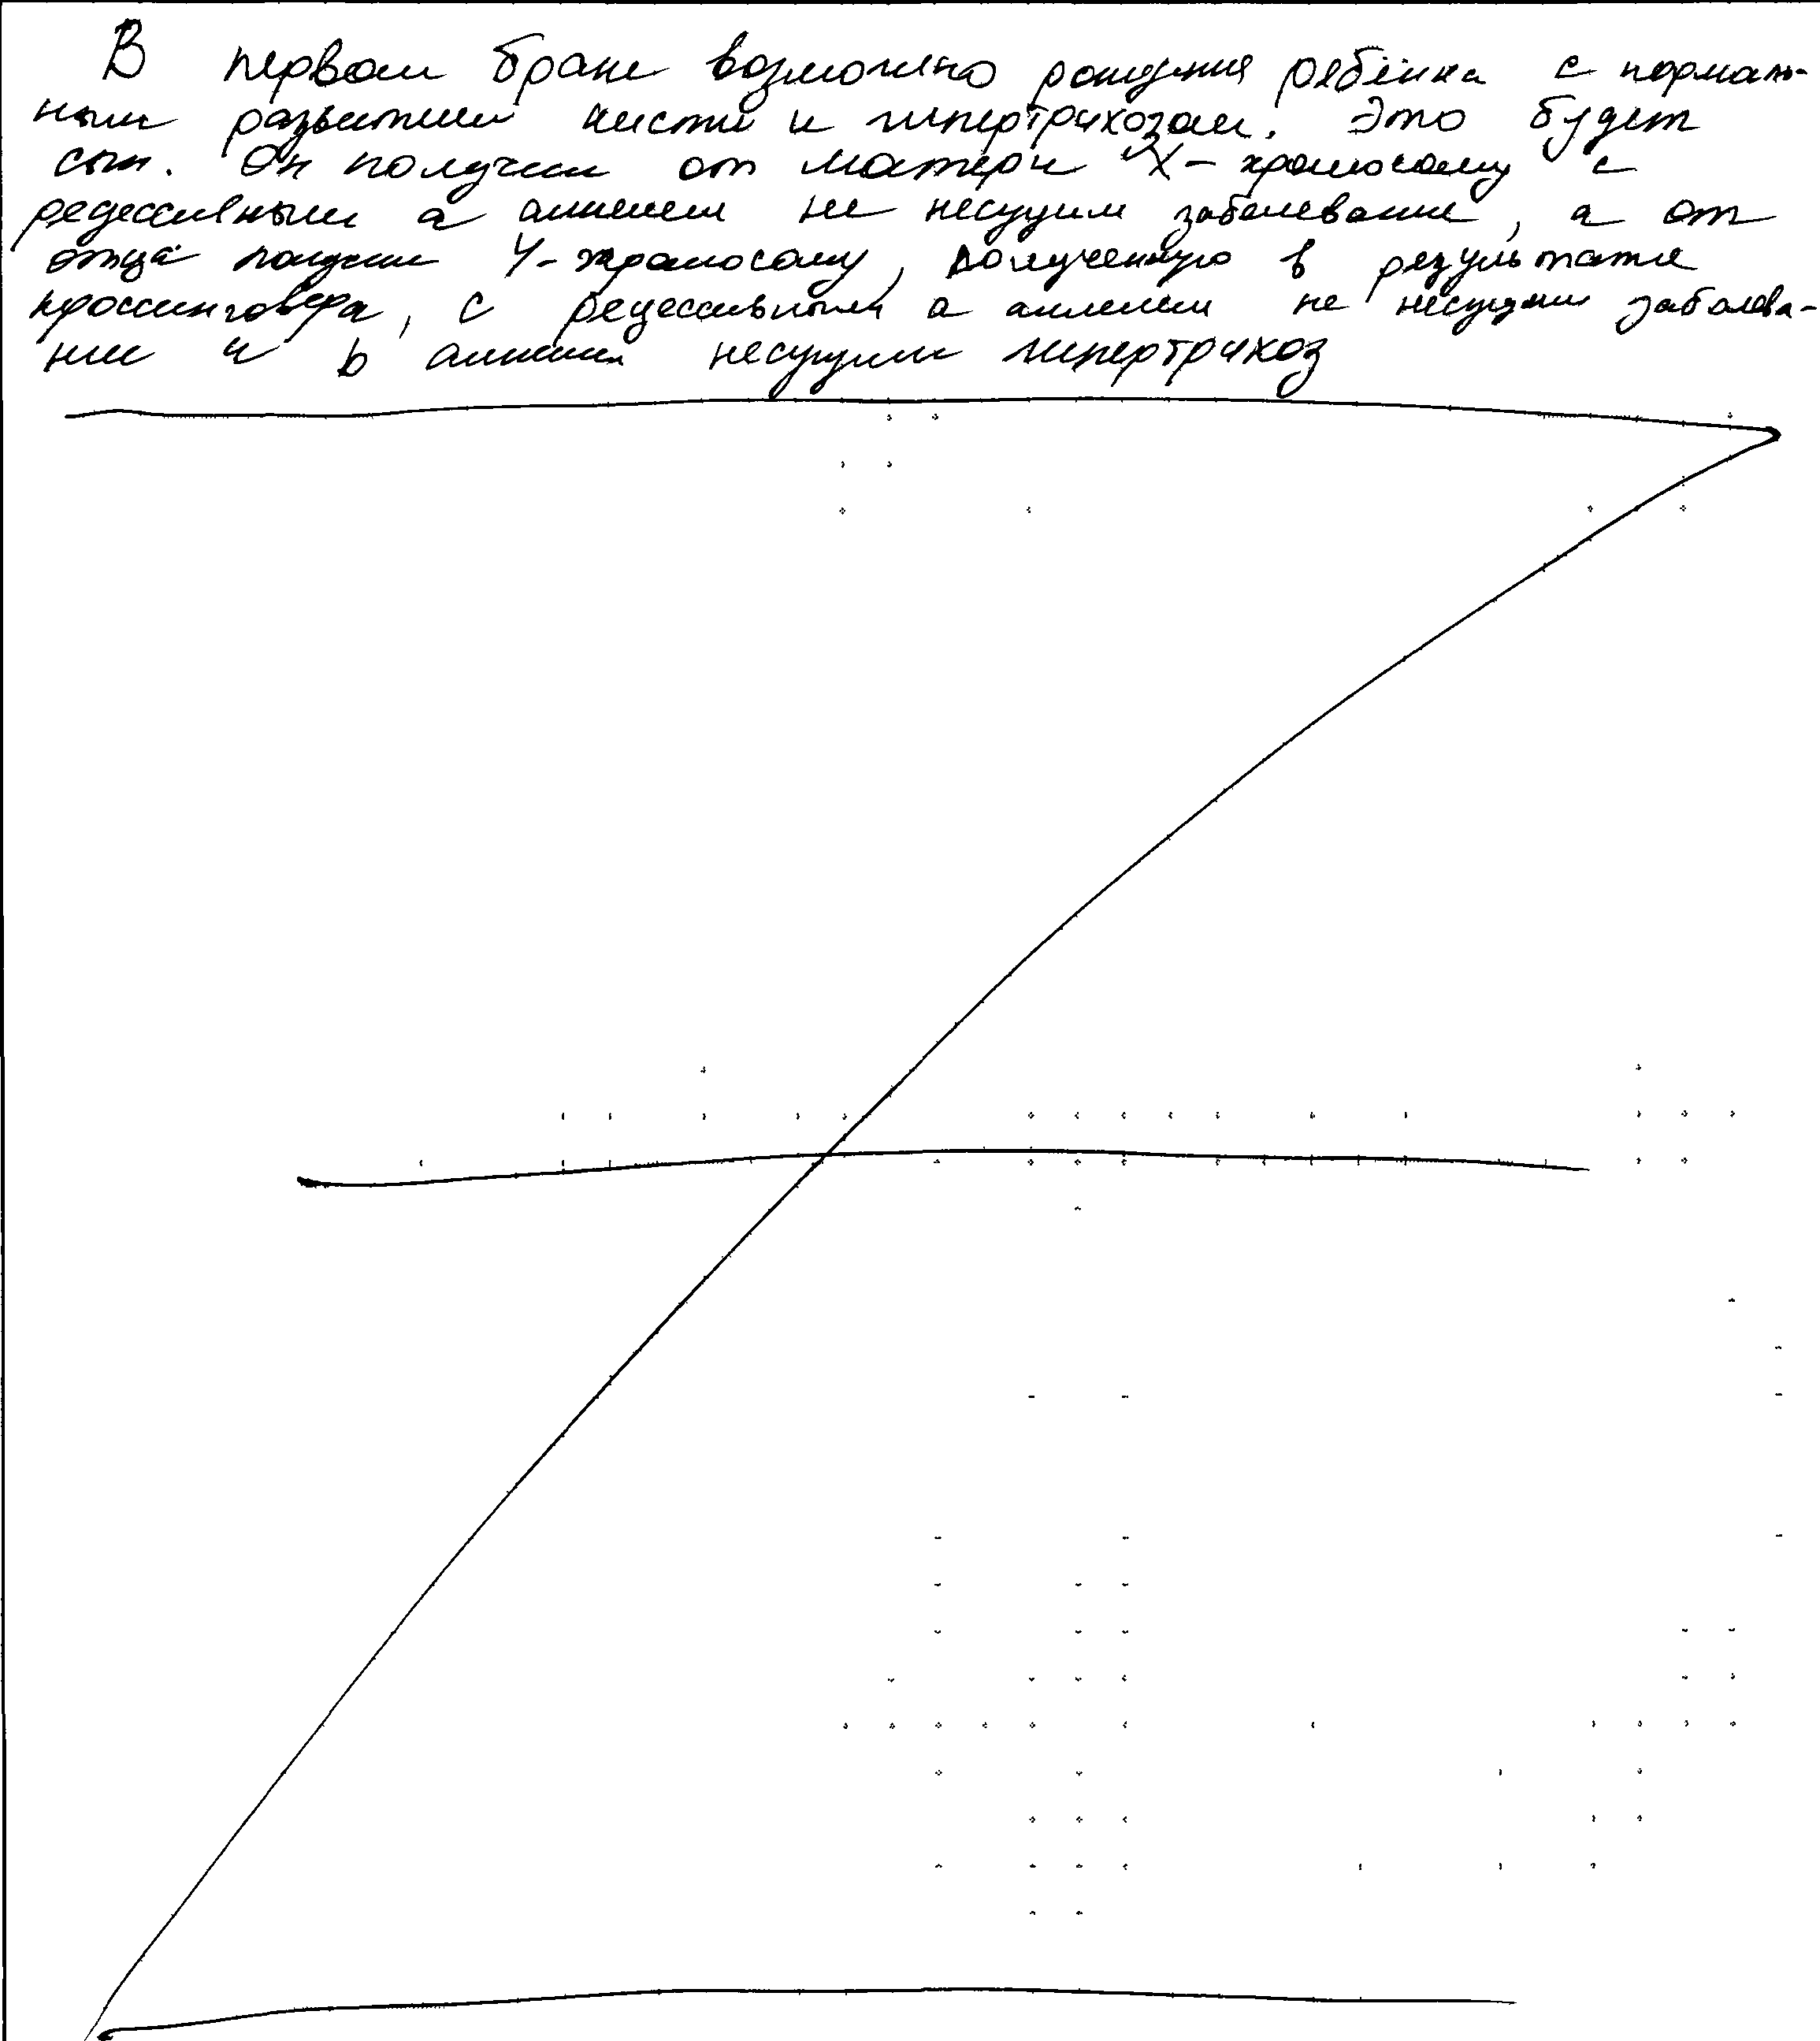 В первом браке возможно рождения ребёнка с нормаль-
ным развитием кисти и гипертрихозом. Это будет
сын. Он получил от матери X-хромосому с
рецессивным а аллелем не несущим заболевание, а от
отца получил Y-хромосому, полученную в результате
кроссинговера, с рецессивным а аллелем не несущим заболева-
ние и b аллелем несущим гипертрихоз